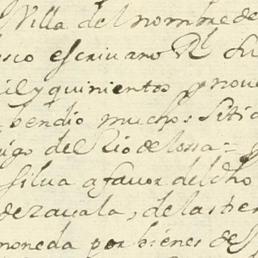 Villa del nombre de
sco escriuano Rl Su
il y quinientos y noue
bendio muchos sitio
igo del Rio de lossa=
silua a fauor del dho
de zauala, de las tier
moneda por bienes de